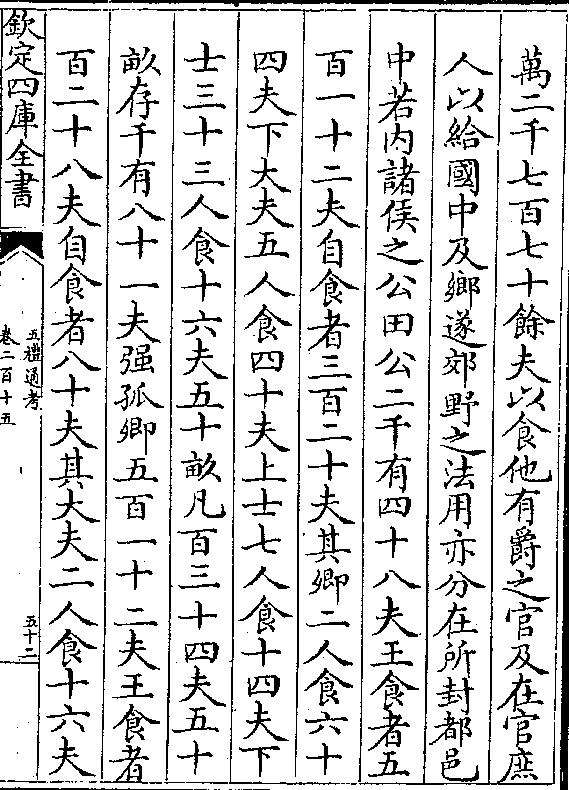 萬二千七百七十餘夫以食他有爵之官及在官庶
人以給國中及鄉遂郊野之法用亦分在所封都邑
中若内諸侯之公田公二千有四十八夫王食者五
百一十二夫自食者三百二十夫其卿二人食六十
四夫下大夫五人食四十夫上士七人食十四夫下
士三十三人食十六夫五十畝凡百三十四夫五十
畝存千有八十一夫强孤卿五百一十二夫王食者
百二十八夫自食者八十夫其大夫二人食十六夫
欽定四庫全書
五禮通考
卷二百十五
五十二